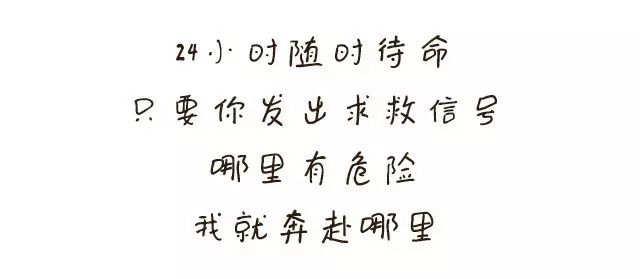 24小时随时待命
只要你发出求救信号
哪里有危险
我就奔赴哪里